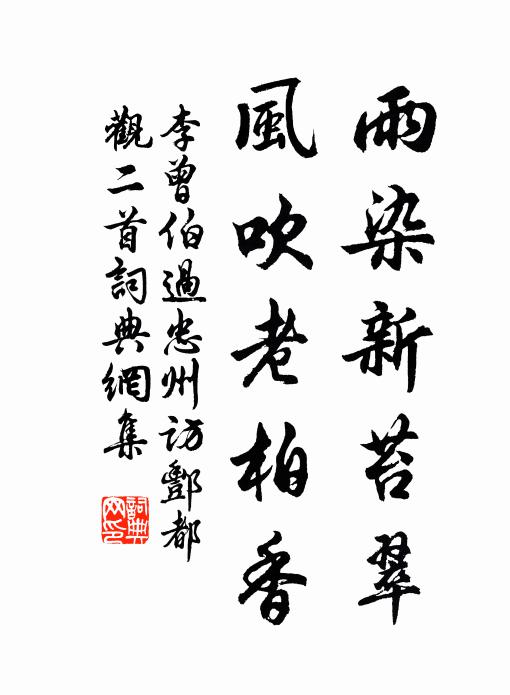 雨染新苔翠
風吹老柏香
李曾伯過忠州訪酆都
觀二首詞典網集
詞典
网印